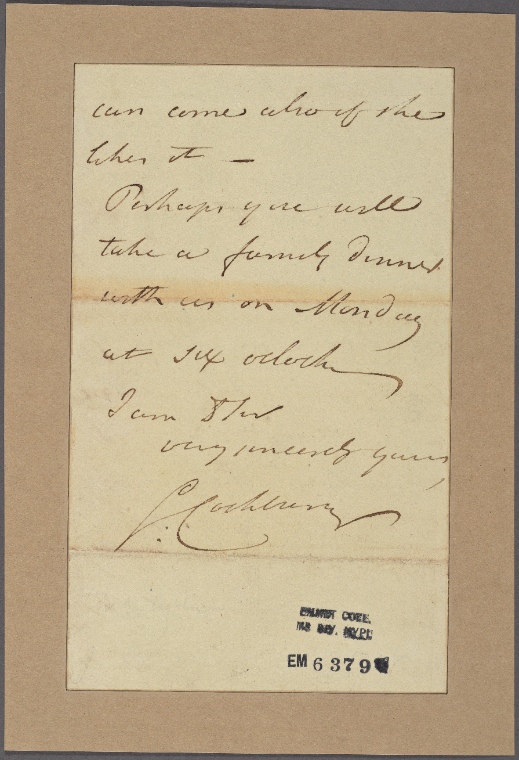 can come also if she
likes it —
Perhaps you will
take a family dinner
with us on Monday
at six oclock
I am D Sir
very sincerely yours,
G: Cockburn
EMMET COLL.
MS DIV. NYPL
EM 6379